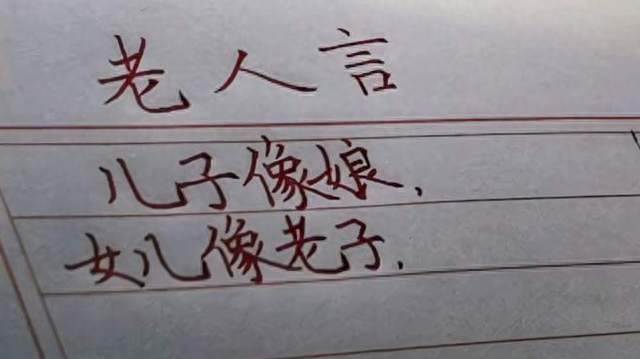 老人言
儿子像娘，
女儿像老子，